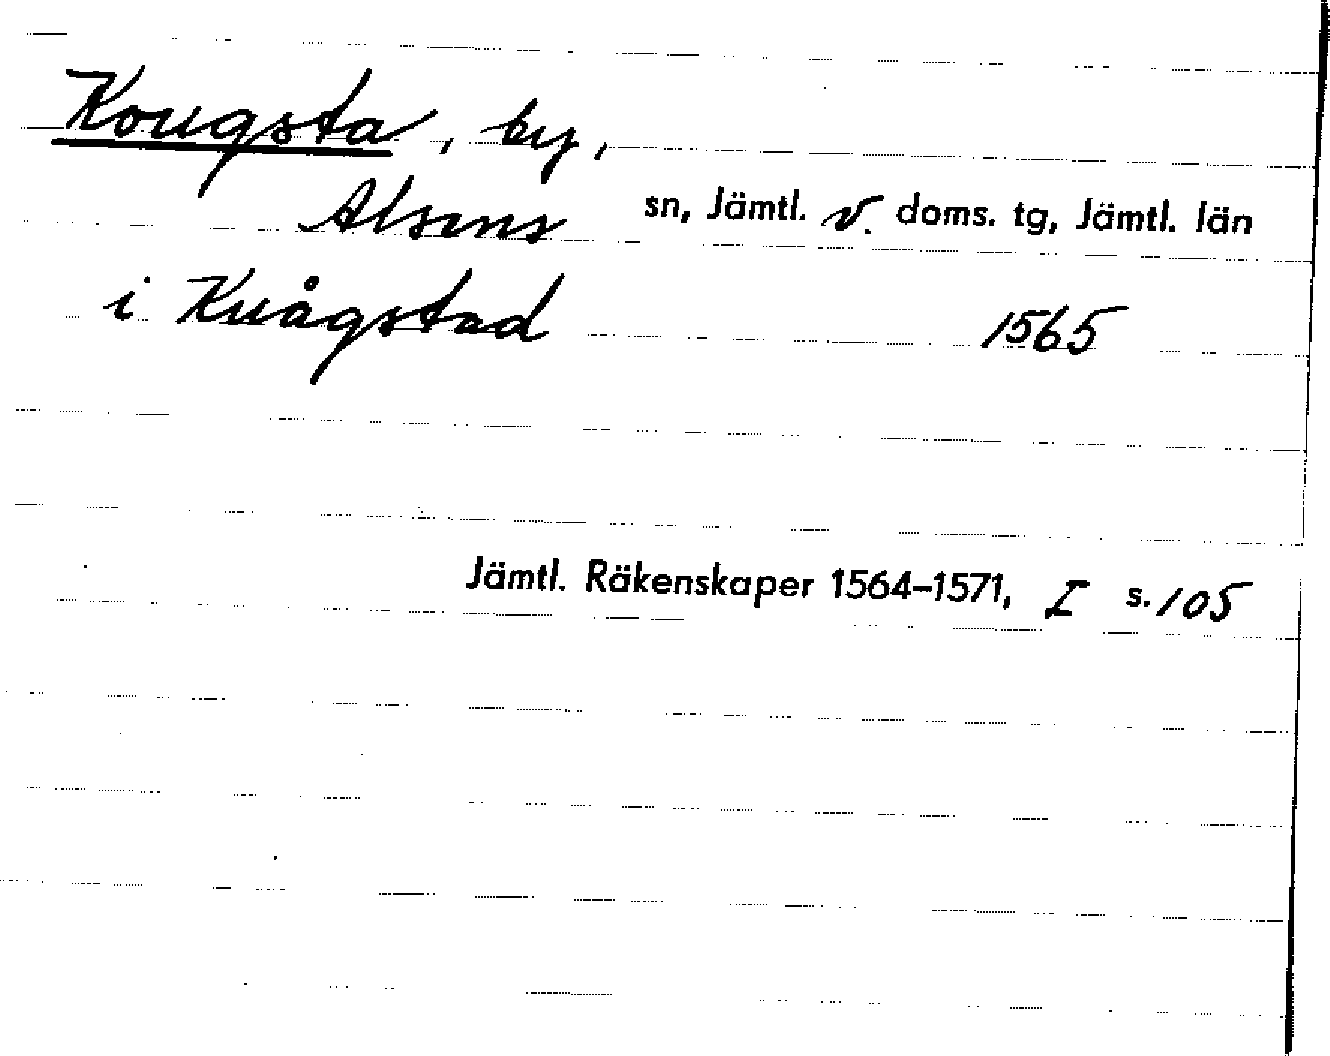 Kougsta, by,
Alsens sn, Jämtl. v. doms. tg, Jämtl. län
i Kuågstad 1565
Jämtl. Räkenskaper 1564-1571, I s. 105